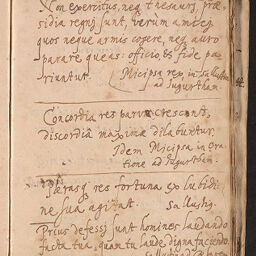 Non exercitus, neq thesauri, præ-
sidia regni sunt, verum amici,
quos neque armis cogere, neq auro
parare queas: officio, & fide pa-
riuntur.
Micipsa rex, in Sallustio
ad Jugurtham.
Concordia res parvæ crescunt,
discordia maximæ dilabuntur.
Idem Micipsa in ora-
tione ad Jugurtham.
res fortuna ex lubidi-
ne sua agitat. Sallustij.
Prius defessi sunt homines laudando
facta tua, quam tu laude digna faciendo.